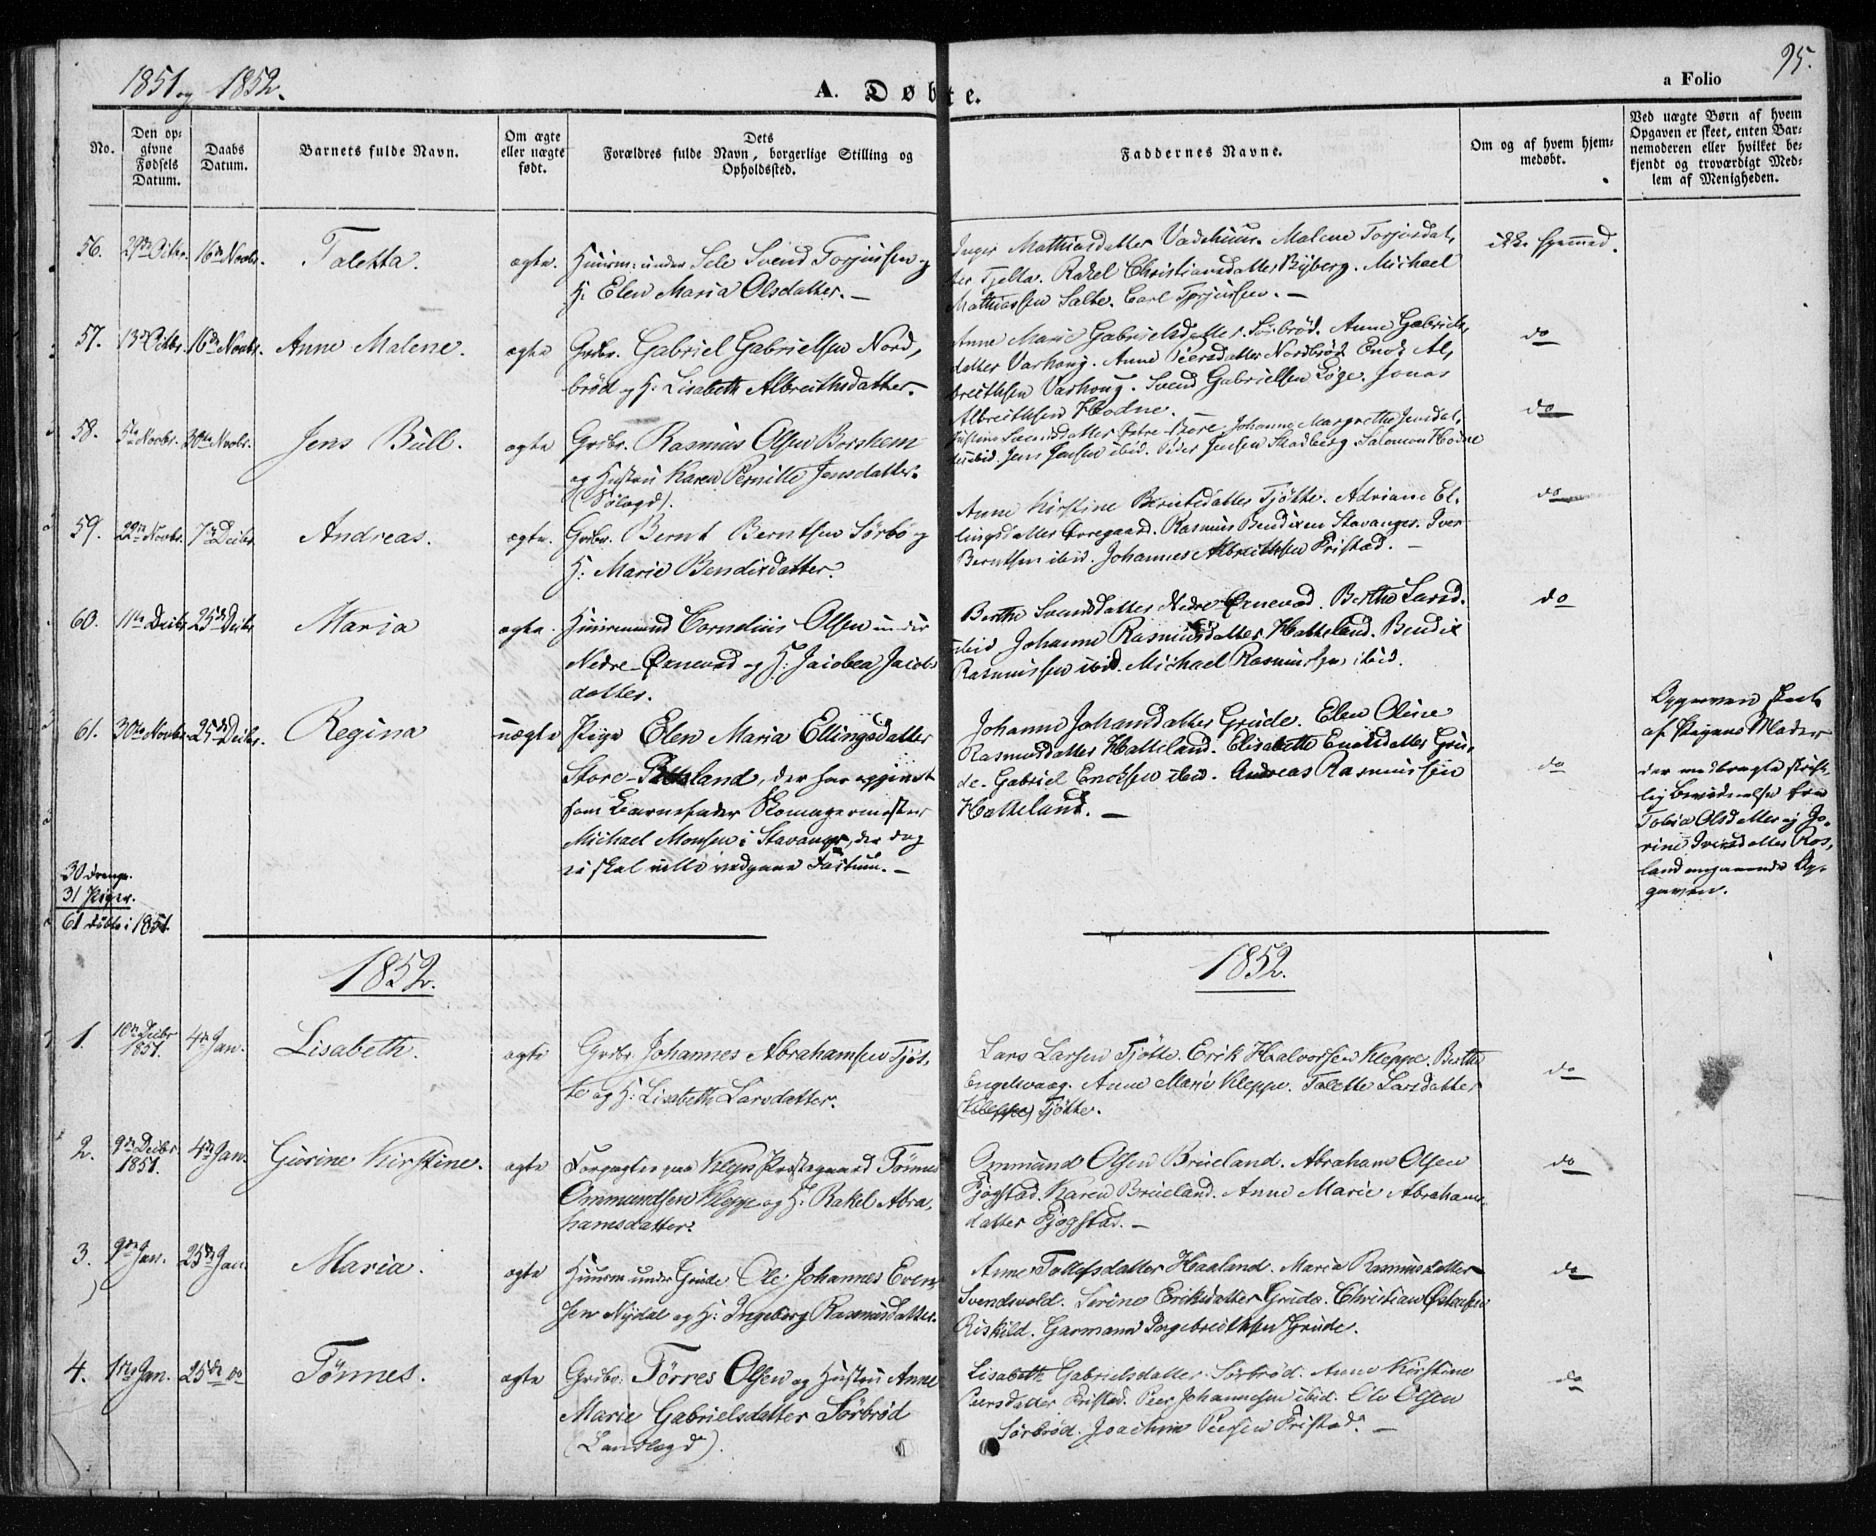 1851 og 1852.
A. Døbte.
a Folio
95.
No.
Den opgivne Fødsels Datum.
Daabs Datum.
Barnets fulde Navn.
Om ægte eller uægte født.
Dets
Forældres fulde Navn, borgerlige Stilling og
Opholdssted.
Faddernes Navne.
Om og af hvem hjemmedøbt.
Ved uægte Børn af hvem
Opgaven er skeet, enten Bar-
nemoderen eller hvilket be-
kjendt og troværdigt Med-
lem af Menigheden.
56. 29de Octbr. 16de Novbr. Taletta. ægte. Huusm: under Sele Svend Torjusen og
H: Elen Maria Olsdatter. —
Inger Mathiasdatter Vadehuus. Malene Torjusdat,
ter Tjelta. Rakel Christiansdatter Byberg. Michael
Mathiassen Salte. Carl Torjussen. —
ikke hjemmed.
57. 13de Octbr. 16de Novbr. Anne Malene. ægte Grdbr. Gabriel Gabrielsen Nord,
brød og H: Lisabeth Albreithsdatter.
Anne Marie Gabrielsdatter Sørbrød. Anne Gabriels,
datter Varhoug. Anne Peersdatter Nordbrød Enok Al,
breithsen Varhoug. Svend Gabrielsen Løge. Jonas
Albreithsen Hodne.
do
58. 5te Novbr. 20de Novbr. Jens Bull. ægte Grdbr. Rasmus Olsen Borshem
og Hustru Karen Pernille Jensdatter.
(Sølagd).
Justine Svendsdatter Østre-Bore. Johanne Margrethe Jensdat,
ter ibid. Jens Jensen ibid. Peder Jensen Skadberg. Salomon Hodne
do
59. 22de Novbr. 7de Decbr. Andreas. ægte. Grdbr. Bernt Berntsen Sørbø og
H: Marie Bendixdatter.
Anne Kirstine Berntsdatter Tjøtte. Adriane El-
lingsdatter Orregaard. Rasmus Bendixen Stavanger. Iver
Berntsen ibid. Johannes Albreithsen Friestad. —
do
60. 11te Decbr. 25de Decbr. Maria ægte. Huusmand Cornelius Olsen under
Nedre-Øxnevad og H: Jacobea Jacobs
datter.
Berthe Svendsdatter Nedre-Øxnevad. Berthe Larsd.
ibid Johanne Rasmusdatter Hatteland. Bendix
Rasmussen ibid. Michael Rasmussen ibid.
do
61. 30te Novbr. 25de Decbr. Regina uægte Pige Elen Maria Ellingsdatter
Store-Rosland, der har opgivet
som Barnefader Skomagermester
Michael Monsen i Stavanger, der dog
ei skal ville vedgaae Factum. —
Johanne Johansdatter Grude. Elen Oline
Rasmusdatter Hatteland. Elisabeth Enoksdatter Gru,
de. Gabriel Enoksen ibid. Andreas Rasmussen
Hatteland. —
do
Opgaven skeet
af Pigens Moder
der medbragte skrift,
lig Bevidnelse fra
Tobia Olsdatter og Jo-
rine Iversdatter Ros,
land angaaende Op-
gaven.
30 drenge.
31 Piger.
61 døbte i 1851.
1852.
1852.
1. 10de Decbr 1851. 4de Jan. Lisabeth. ægte Grdbr. Johannes Abrahamsen Tjøt,
te og H: Lisabeth Larsdatter.
Lars Larsen Tjøtte. Erik Halvorsen Kleppe. Berthe
Engelsvaag. Anne Marie Kleppe. Talette Larsdatter
(Kleppe) Tjøtte.
do
2. 9de Decbr 1851. 4de Jan. Gurine Kirstine. ægte Forpagter paa Klep Prestegaard Tønnes
Ommundsen Kleppe og H: Rakel Abra,
hamsdatter.
Ommund Olsen Brueland. Abraham Olsen
Fjogstad. Karen Brueland. Anne Marie Abrahams
datter Fjogstad. —
do
3. 9de Jan. 25de Jan. Maria. ægte Huusm under Grude Ole Johannes Even,
sen Nydal og H: Ingeborg Rasmusdatter.
Anne Tollefsdatter Haaland. Maria Rasmusdatter
Svendsvold. Serine Eriksdatter Grude. Christian Østensen
Riskild. Garmann Ingebreithsen Grude.
do
4. 1ste Jan. 25de do Tønnes. ægte Grdbr. Tørres Olsen og Hustru Anne
Marie Gabrielsdatter Sørbrød
(Landlagd).
Lisabeth Gabrielsdatter Sørbrød. Anne Kirstine
Peersdatter Fristad. Peer Johannesen ibid. Ole Olsen
Sørbrød. Joachim Peersen Fristad. —
do